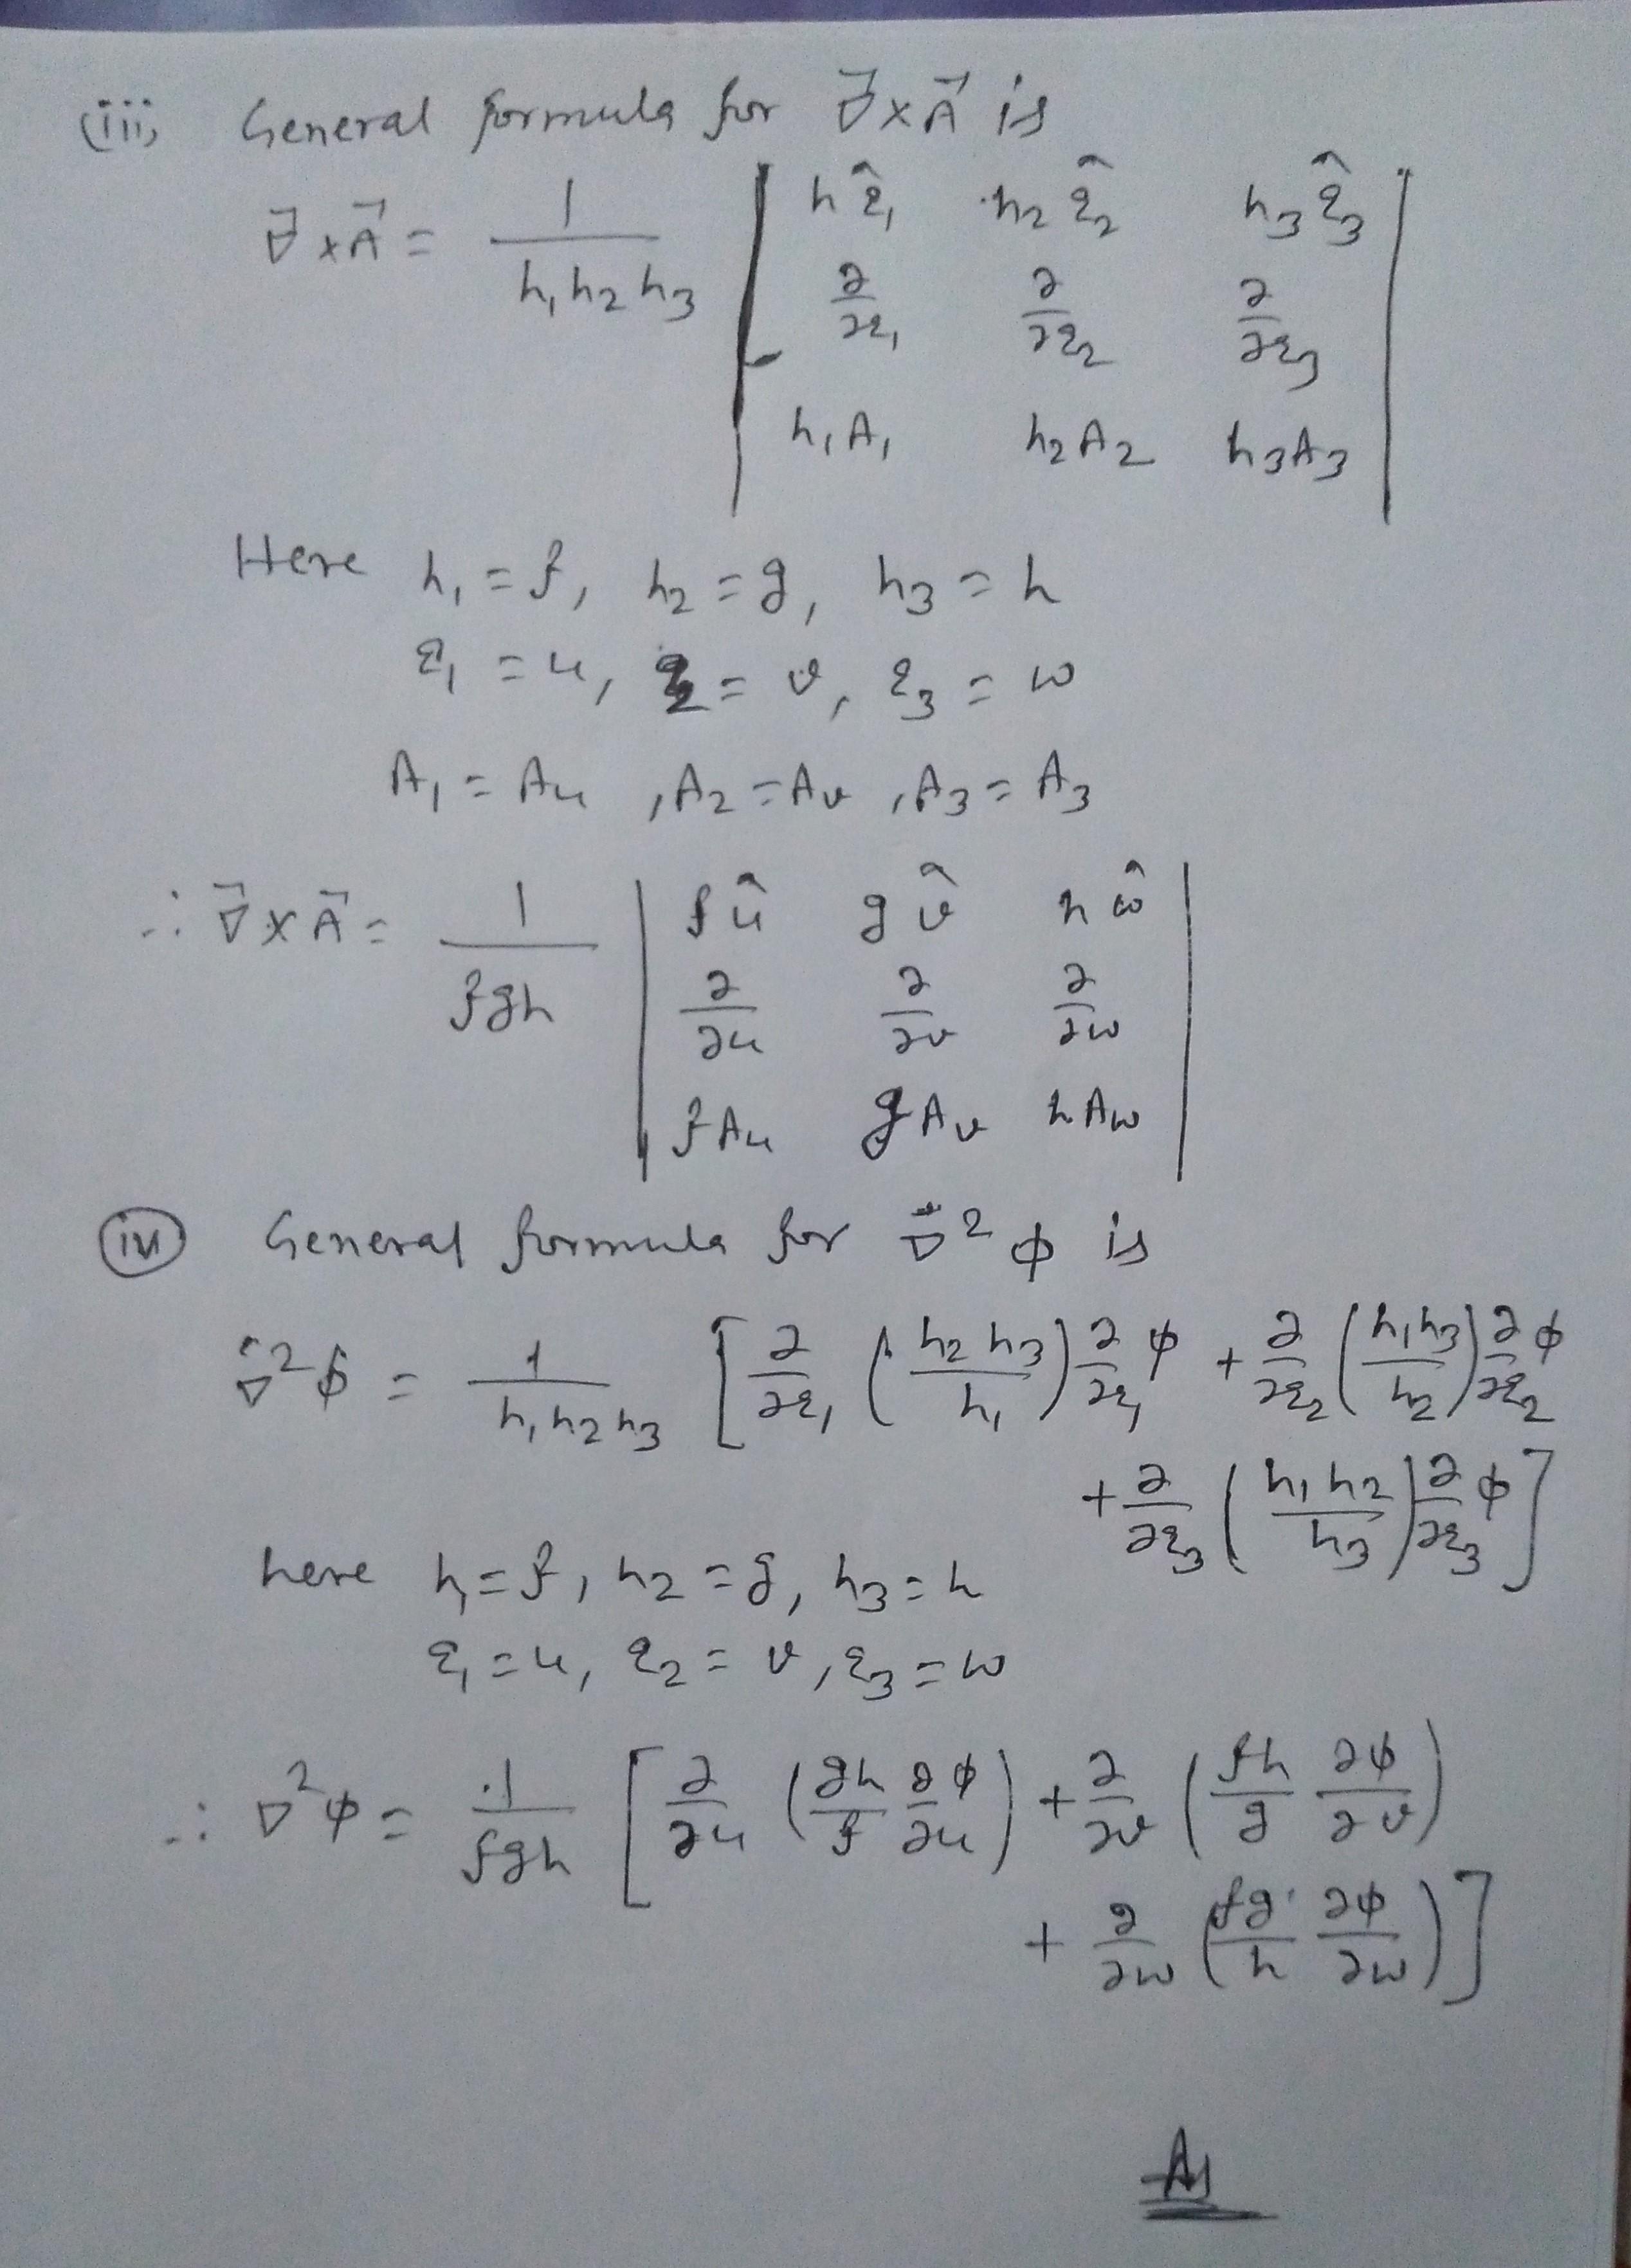 (iii) General formula for ∇⃗×A⃗ is
∇⃗×A⃗ = 1/(h₁h₂h₃) | h q̂₁ h₂ q̂₂ h₃ q̂₃ |
| ∂/∂q₁ ∂/∂q₂ ∂/∂q₃ |
| h₁A₁ h₂A₂ h₃A₃ |
Here h₁ = f, h₂ = g, h₃ = h
q₁ = u, q₂ = v, q₃ = w
A₁ = Au , A₂ = Av , A₃ = A₃
∴ ∇⃗×A⃗ = 1/(fgh) | f û g v̂ h ŵ |
| ∂/∂u ∂/∂v ∂/∂w |
| fAu gAv hAw |
(iv) General formula for ∇⃗²φ is
∇⃗²φ = 1/(h₁h₂h₃) [ ∂/∂q₁ (h₂h₃/h₁) ∂/∂q₁ φ + ∂/∂q₂ (h₁h₃/h₂) ∂/∂q₂ φ
+ ∂/∂q₃ (h₁h₂/h₃) ∂/∂q₃ φ ]
here h₁ = f, h₂ = g, h₃ = h
q₁ = u, q₂ = v, q₃ = w
∴ ∇²φ = 1/(fgh) [ ∂/∂u (gh/f ∂φ/∂u) + ∂/∂v (fh/g ∂φ/∂v)
+ ∂/∂w (fg/h ∂φ/∂w) ]